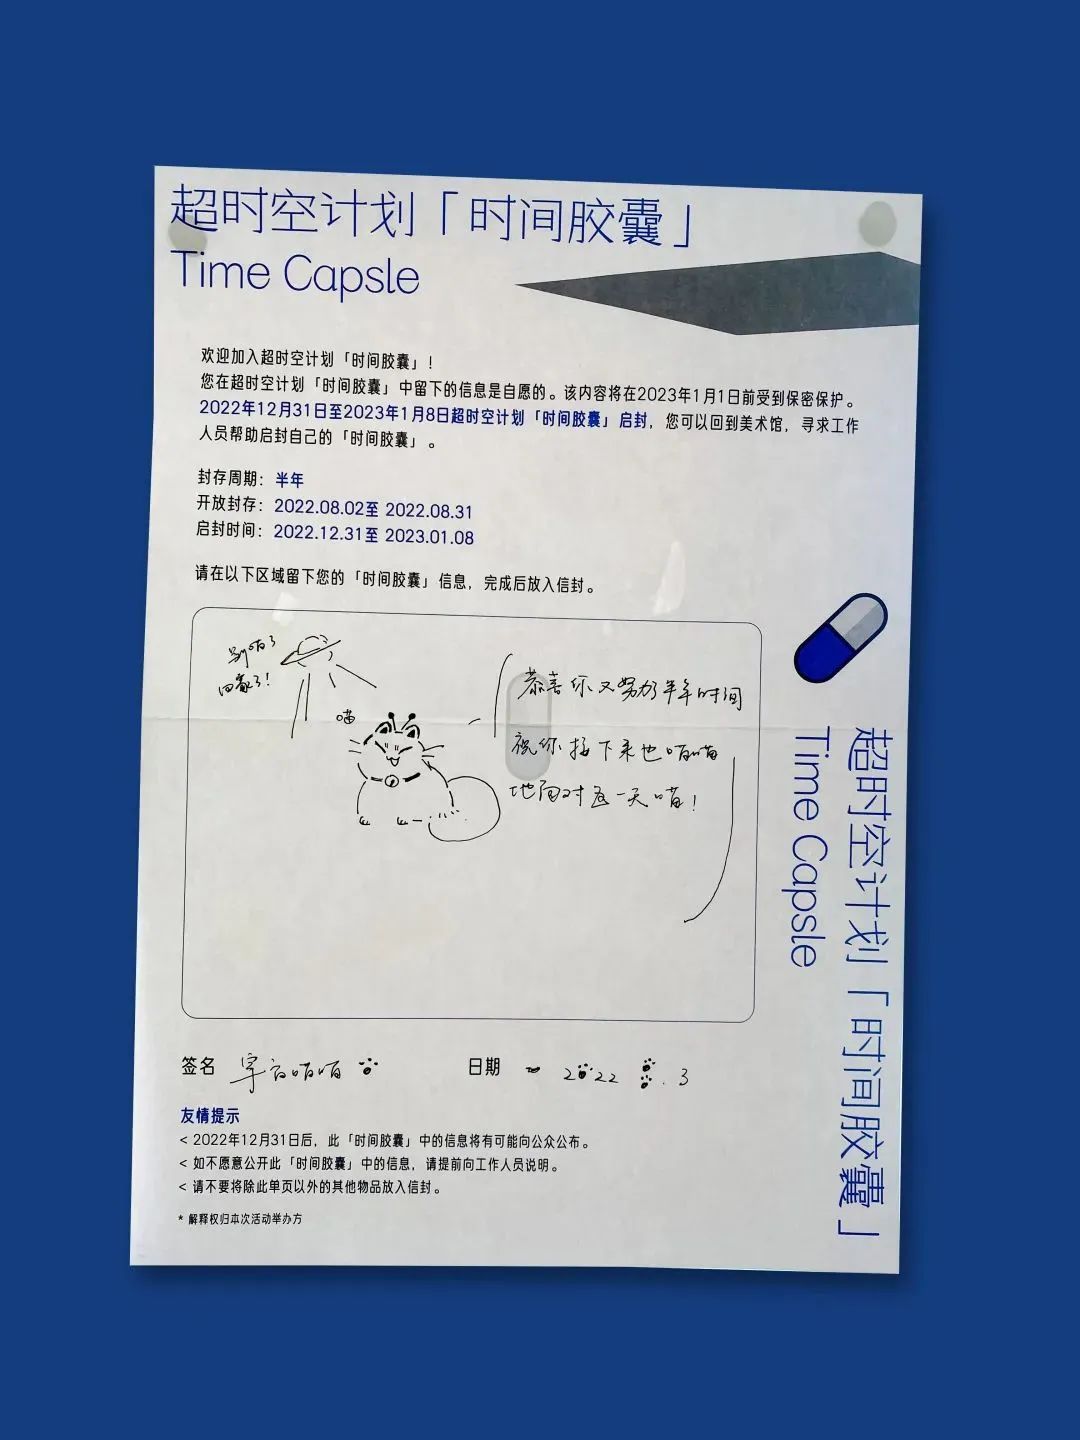 超时空计划「时间胶囊」
Time Capsle
欢迎加入超时空计划「时间胶囊」！
您在超时空计划「时间胶囊」中留下的信息是自愿的。该内容将在2023年1月1日前受到保密保护。
2022年12月31日至2023年1月8日超时空计划「时间胶囊」启封，您可以回到美术馆，寻求工作
人员帮助启封自己的「时间胶囊」。
封存周期：半年
开放封存：2022.08.02至 2022.08.31
启封时间：2022.12.31至 2023.01.08
请在以下区域留下您的「时间胶囊」信息，完成后放入信封。
别喵了
回家了！
喵
恭喜你又努力了半年时间
祝你接下来也喵喵
地面对每一天喵！
签名 宇宙喵喵
日期 2022 8.3
友情提示
< 2022年12月31日后，此「时间胶囊」中的信息将有可能向公众公布。
< 如不愿意公开此「时间胶囊」中的信息，请提前向工作人员说明。
< 请不要将除此单页以外的其他物品放入信封。
* 解释权归本次活动举办方
超时空计划「时间胶囊」
Time Capsle